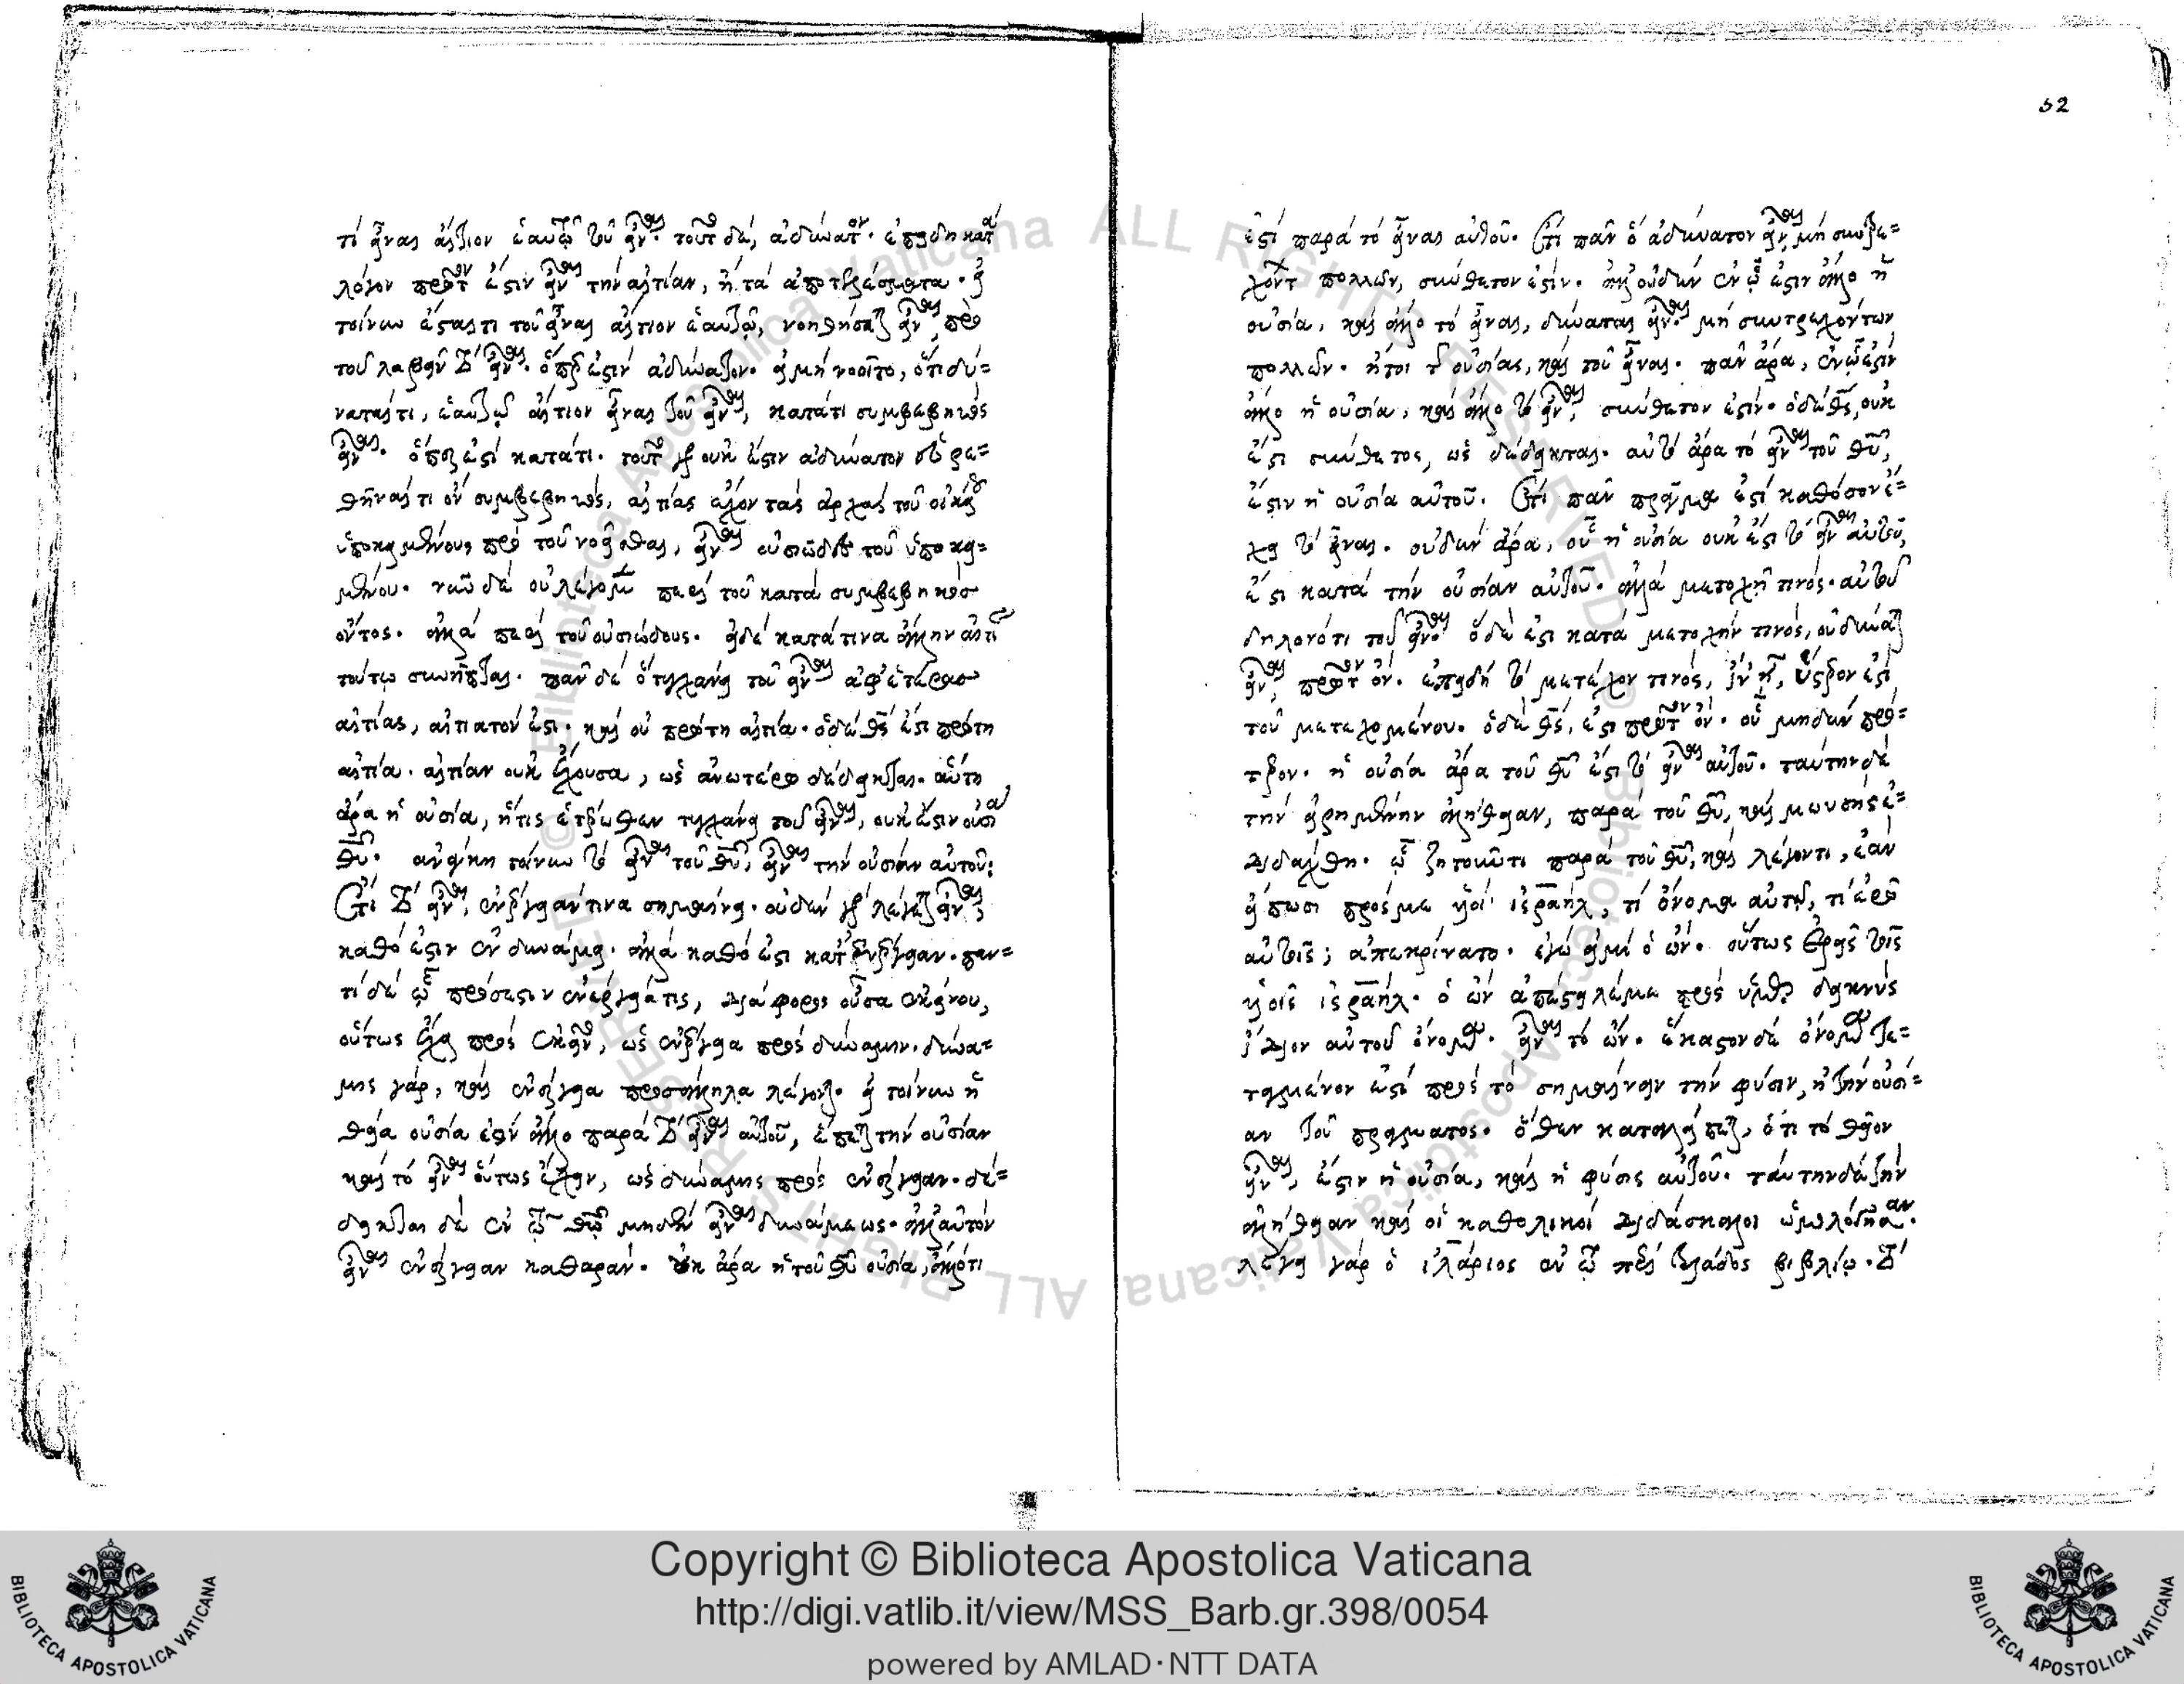 τί εἶναι αἴτιον ἑαυτῷ τοῦ εἶναι. τοῦτο δέ, ἀδύνατον. ἐπειδὴ κατὰ
λόγον πρότερόν ἐστιν εἶναι τὴν αἰτίαν, ἢ τὰ ἀποτελέσματα. εἰ
τοίνυν ἔσται τι τοῦ εἶναι αἴτιον ἑαυτῷ, νοηθήσεται εἶναι, πρὸ
τοῦ λαβεῖν τὸ εἶναι. ὅπερ ἐστὶν ἀδύνατον. εἰ μὴ νοοῖτο, ὅτι δύ=
ναταί τι, ἑαυτῷ αἴτιον εἶναι τοῦ εἶναι, κατά τι συμβεβηκὸς
εἶναι. ὅπερ ἐστὶ κατά τι. τοῦτο γὰρ οὐκ ἔστιν ἀδύνατον εὑρε=
θῆναί τι ὂν συμβεβηκός, αἰτίας ἔχον τὰς ἀρχὰς τοῦ οἰκείου
ὑποκειμένου, πρὸ τοῦ νοεῖσθαι, εἶναι οὐσιῶδες τοῦ ὑποκει=
μένου. νῦν δὲ οὐ λέγομεν περὶ τοῦ κατὰ συμβεβηκὸς
ὄντος. ἀλλὰ περὶ τοῦ οὐσιώδους. εἰ δὲ κατά τινα ἄλλην αἰτίαν
τούτῳ συνῆπται. πᾶν δὲ ὃ τυγχάνει τοῦ εἶναι ἀφ' ἑτέρας
αἰτίας, αἰτιατόν ἐστι. καὶ οὐ πρώτη αἰτία. ὁ δὲ θς ἐστι πρώτη
αἰτία. αἰτίαν οὐκ ἔχουσα, ὡς ἀνωτέρω δέδεικται. αὕτη
ἄρα ἡ οὐσία, ἥτις ἑτέρωθεν τυγχάνει τοῦ εἶναι, οὐκ ἔστιν οὐσία
θυ. ἀνάγκη τοίνυν τὸ εἶναι τοῦ θυ, εἶναι τὴν οὐσίαν αὐτοῦ:
Ἔτι τὸ εἶναι, ἐνέργειάν τινα σημαίνει. οὐδὲν γὰρ λέγεται εἶναι,
καθό ἐστιν ἐν δυνάμει. ἀλλὰ καθό ἐστι κατ' ἐνέργειαν. παν=
τὶ δὲ ᾧ πρόσεστιν ἐνέργειά τις, διάφορος οὖσα ἐκείνου,
οὕτως ἔχει πρὸς ἐκεῖνο, ὡς ἐνέργεια πρὸς δύναμιν. δύνα=
μις γάρ, καὶ ἐνέργεια πρὸς ἄλληλα λέγεται. εἰ τοίνυν ἡ
θεία οὐσία ἐστὶν ἄλλο παρὰ τὸ εἶναι αὐτοῦ, ἕπεται τὴν οὐσίαν
καὶ τὸ εἶναι οὕτως ἔχειν, ὡς δύναμις πρὸς ἐνέργειαν. δέ=
δεικται δὲ ἐν τῷ θῶ μηδὲν εἶναι δυνάμεως. ἀλλ' αὐτὸν
εἶναι ἐνέργειαν καθαράν. οὐκ ἄρα ἡ τοῦ θυ οὐσία, ἄλλό τι
52
ἐστὶ παρὰ τὸ εἶναι αὐτοῦ. Ἔτι πᾶν ὃ ἀδύνατον εἶναι, μὴ συντρε=
χόντων πολλῶν, σύνθετον ἐστίν. ἀλλ' οὐδὲν ἐν ᾧ ἐστιν ἄλλο ἡ
οὐσία, καὶ ἄλλο τὸ εἶναι, δύναται εἶναι μὴ συντρεχόντων
πολλῶν. ἤτοι τῆς οὐσίας, καὶ τοῦ εἶναι. πᾶν ἄρα, ἐν ᾧ ἐστὶν
ἄλλο ἡ οὐσία, καὶ ἄλλο τὸ εἶναι, σύνθετον ἐστίν. ὁ δὲ θς, οὐκ
ἔστι σύνθετος, ὡς δέδεικται. αὐτὸ ἄρα τὸ εἶναι τοῦ θυ,
ἔστιν ἡ οὐσία αὐτοῦ. Ἔτι πᾶν πρᾶγμα ἐστὶ καθόσον ἔ=
χει τὸ εἶναι. οὐδὲν ἄρα, οὗ ἡ οὐσία οὐκ ἔστι τὸ εἶναι αὐτοῦ,
ἔστι κατὰ τὴν οὐσίαν αὐτοῦ. ἀλλὰ μετοχῇ τινός. αὐτοῦ
δηλονότι τοῦ εἶναι. ὃ δέ ἐστι κατὰ μετοχήν τινός, οὐ δύναται
εἶναι πρῶτον ὄν. ἐπειδὴ τὸ μετέχον τινός, ἵν' ᾖ, ὕστερον ἐστὶ
τοῦ μετεχομένου. ὁ δὲ θς, ἔστι πρῶτον ὄν. οὗ μηδὲν πρό=
τερον. ἡ οὐσία ἄρα τοῦ θυ ἐστὶ τὸ εἶναι αὐτοῦ. ταύτην δὲ
τὴν εἰρημένην ἀλήθειαν, παρὰ τοῦ θυ, καὶ μωυσῆς ἐ=
διδάχθη. ᾧ ζητοῦντι παρὰ τοῦ θυ, καὶ λέγοντι, ἐὰν
εἴπωσι πρός με υἱοὶ ἰσραήλ, τί ὄνομα αὐτῷ, τί ἐρῶ
αὐτοῖς; ἀπεκρίνατο. ἐγώ εἰμί ὁ ὤν. οὕτως ἐρεῖς τοῖς
υἱοῖς ἰσραήλ. ὁ ὢν ἀπέσταλμέ με πρὸς ὑμᾶς δεικνὺς
ἴδιον αὐτοῦ ὄνομα εἶναι τὸ ὤν. ἕκαστον δὲ ὄνομα τε=
ταγμένον ἐστὶ πρὸς τὸ σημαίνειν τὴν φύσιν, ἢ τὴν οὐσί=
αν τοῦ πράγματος. ὅθεν καταλείπεται, ὅτι τὸ θεῖον
εἶναι, ἔστιν ἡ οὐσία, καὶ ἡ φύσις αὐτοῦ. ταύτην δὲ τὴν
ἀλήθειαν καὶ οἱ καθολικοὶ διδάσκαλοι ὡμολόγησαν.
λέγει γὰρ ὁ ἱλάριος ἐν τῷ περὶ τριάδος βιβλίῳ. τὸ
Copyright © Biblioteca Apostolica Vaticana
http://digi.vatlib.it/view/MSS_Barb.gr.398/0054
powered by AMLAD·NTT DATA